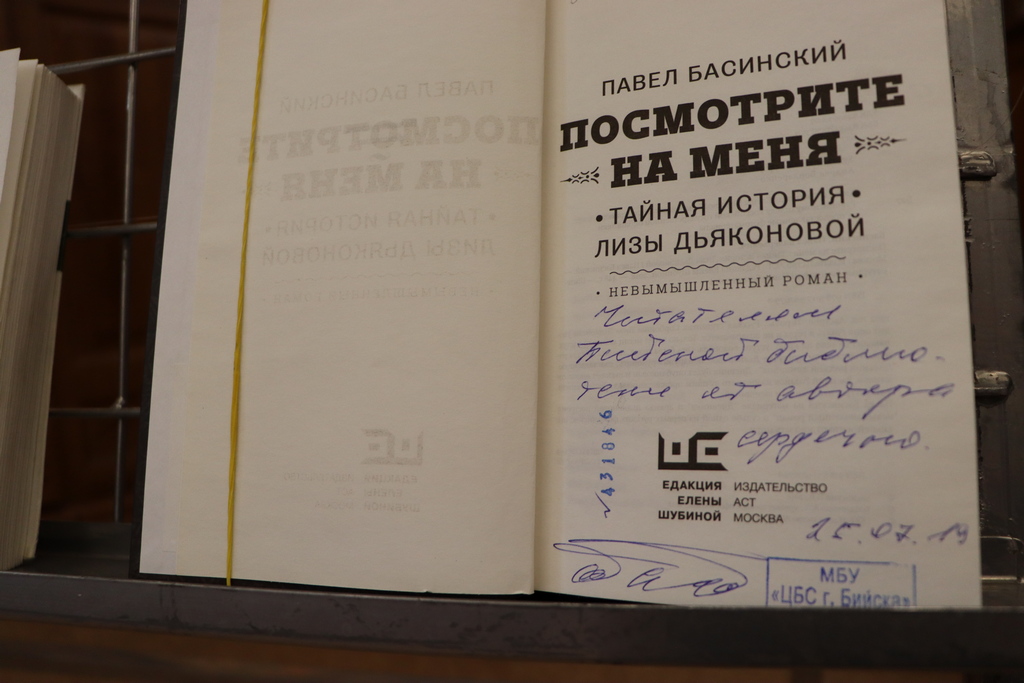 ПАВЕЛ БАСИНСКИЙ
ПОСМОТРИТЕ
НА МЕНЯ
• ТАЙНАЯ ИСТОРИЯ •
ЛИЗЫ ДЬЯКОНОВОЙ
• НЕВЫМЫШЛЕННЫЙ РОМАН •
Читателям
Бийской библио-
теки от автора
сердечно.
431846
ЕДАКЦИЯ ИЗДАТЕЛЬСТВО
ЕЛЕНЫ АСТ
ШУБИНОЙ МОСКВА
25.07.19
МБУ
«ЦБС г. Бийска»